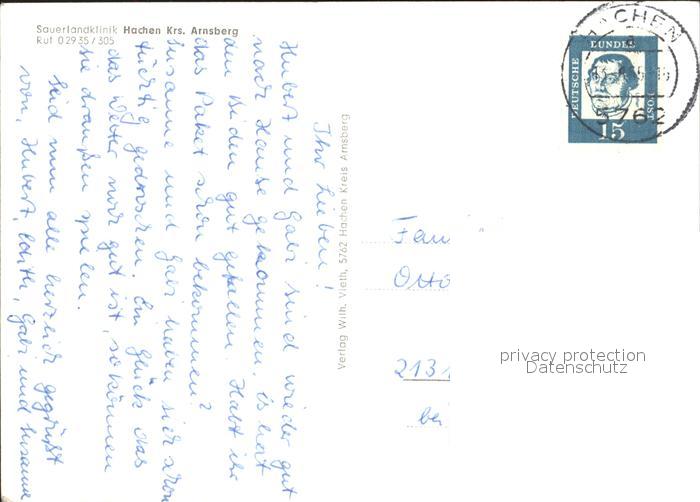 Sauerlandklinik Hachen Krs. Arnsberg
Ruf 0 29 35 / 305
Ihr Lieben!
Hubert und Gabi sind wieder gut
nach Hause gekommen. Es hat
den Beiden gut gefallen. Habt ihr
das Paket schon bekommen?
Susanne und Gabi haben sich schon
tüchtig gedroschen. Ein Glück das
das Wetter noch gut ist, so können
sie draußen spielen.
Seid nun alle herzlich gegrüßt
von, Hubert, Gabi und Susanne
Verlag Wilh. Vieth, 5762 Hachen Kreis Arnsberg
HACHEN
5762
DEUTSCHE BUNDESPOST
15
Fam
Otto
2131
bei
privacy protection
Datenschutz